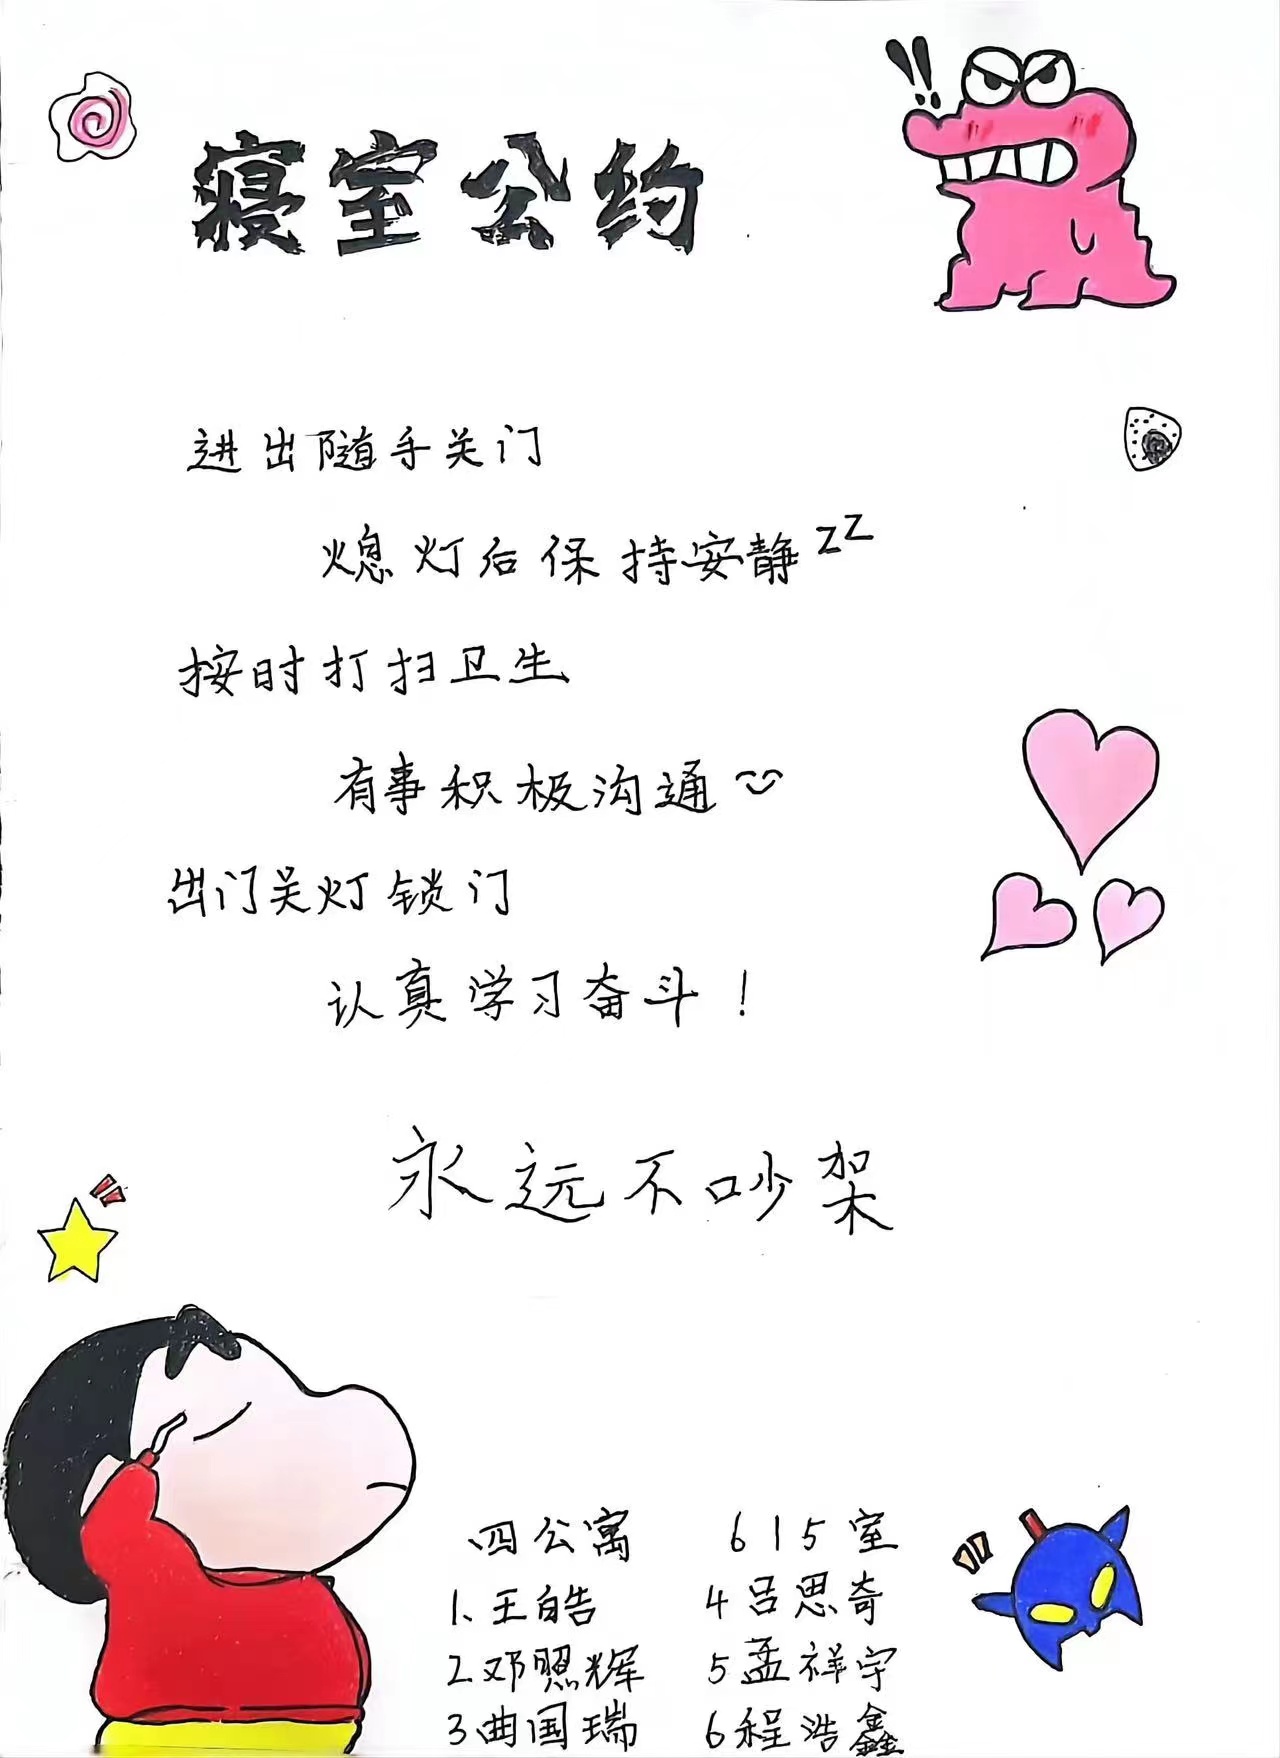 !!
寝室公约
进出随手关门
熄灯后保持安静zZ
按时打扫卫生
有事积极沟通
出门关灯锁门
认真学习奋斗！
永远不吵架
四公寓 615室
1、王皓 4吕思奇
2.邓照辉 5孟祥宇
3曲国瑞 6程浩鑫